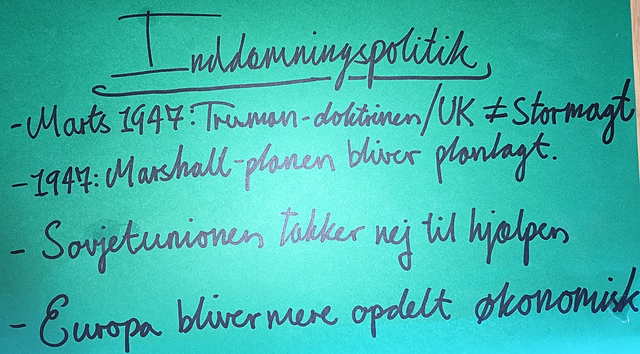 Inddæmningspolitik
- Marts 1947: Truman-doktrinen/UK ≠ Stormagt
- 1947: Marshall-planen bliver planlagt.
- Sovjetunionen takker nej til hjælpen
- Europa bliver mere opdelt økonomisk